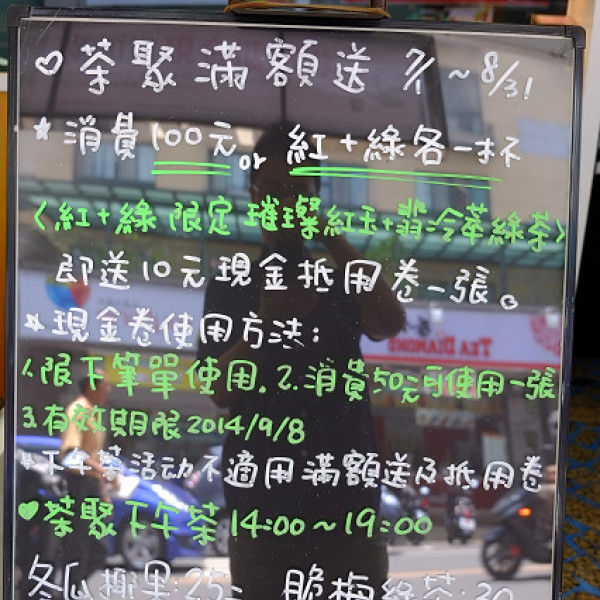 ♡茶聚滿額送 7/1~8/31
★消費100元or 紅+綠各一杯
〈紅+綠 限定 璀璨紅玉+翡冷萃綠茶〉
即送10元現金抵用卷一張。
★現金卷使用方法:
1.限下筆單使用. 2.消費50元可使用一張
3.有效期限2014/9/8
*下午茶活动不適用滿額送及抵用卷
♥茶聚下午茶 14:00~19:00
冬瓜椰果:25 脆梅綠茶:30
TEA DIAMOND